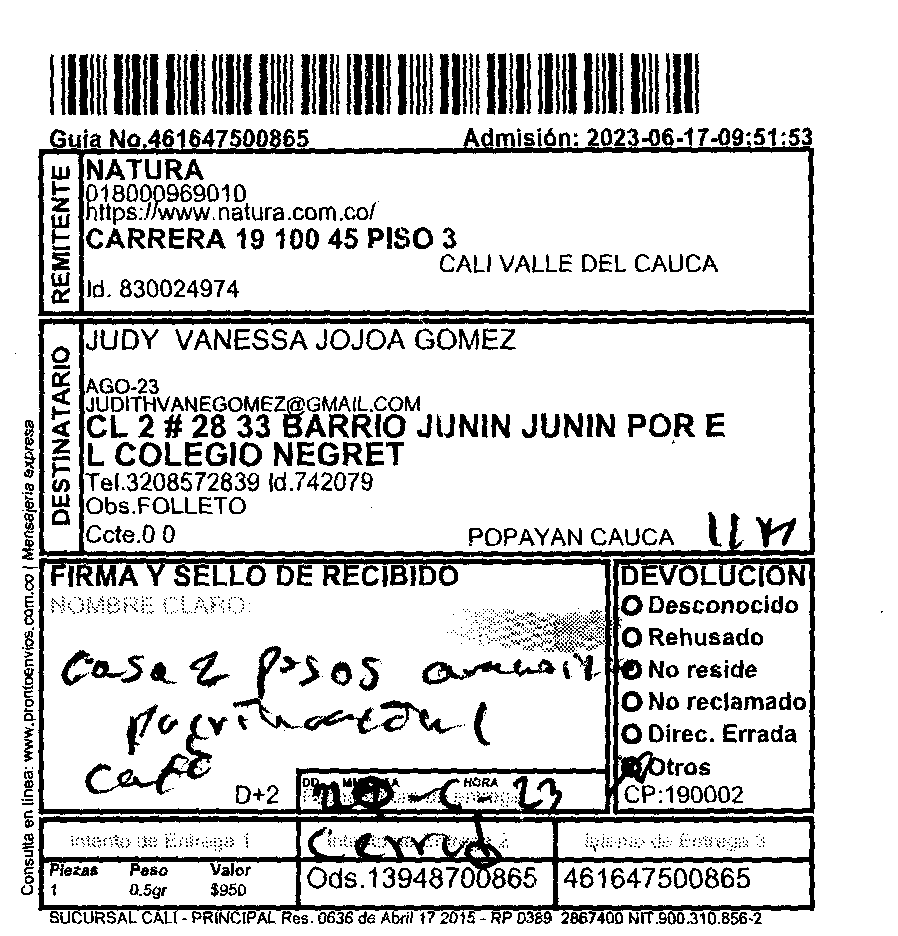 Guía No.461647500865 Admisión: 2023-06-17-09:51:53
REMITENTE
NATURA
018000969010
https://www.natura.com.co/
CARRERA 19 100 45 PISO 3
CALI VALLE DEL CAUCA
Id. 830024974
DESTINATARIO
JUDY VANESSA JOJOA GOMEZ
AGO-23
JUDITHVANEGOMEZ@GMAIL.COM
CL 2 # 28 33 BARRIO JUNIN JUNIN POR E
L COLEGIO NEGRET
Tel.3208572839 Id.742079
Obs.FOLLETO
Ccte.0 0
POPAYAN CAUCA
FIRMA Y SELLO DE RECIBIDO
NOMBRE CLARO:
Casa 2 pisos
café
D+2
HORA
DEVOLUCION
Desconocido
Rehusado
No reside
No reclamado
Direc. Errada
Otros
CP:190002
Intento de Entrega 1
Cerrado
Intento de Entrega 3
Piezas Peso Valor
1 0.5gr $950
Ods.13948700865
461647500865
SUCURSAL CALI - PRINCIPAL Res. 0636 de Abril 17 2015 - RP 0389 2867400 NIT.900.310.856-2
Consulta en línea: www.prontoenvios.com.co | Mensajería expresa